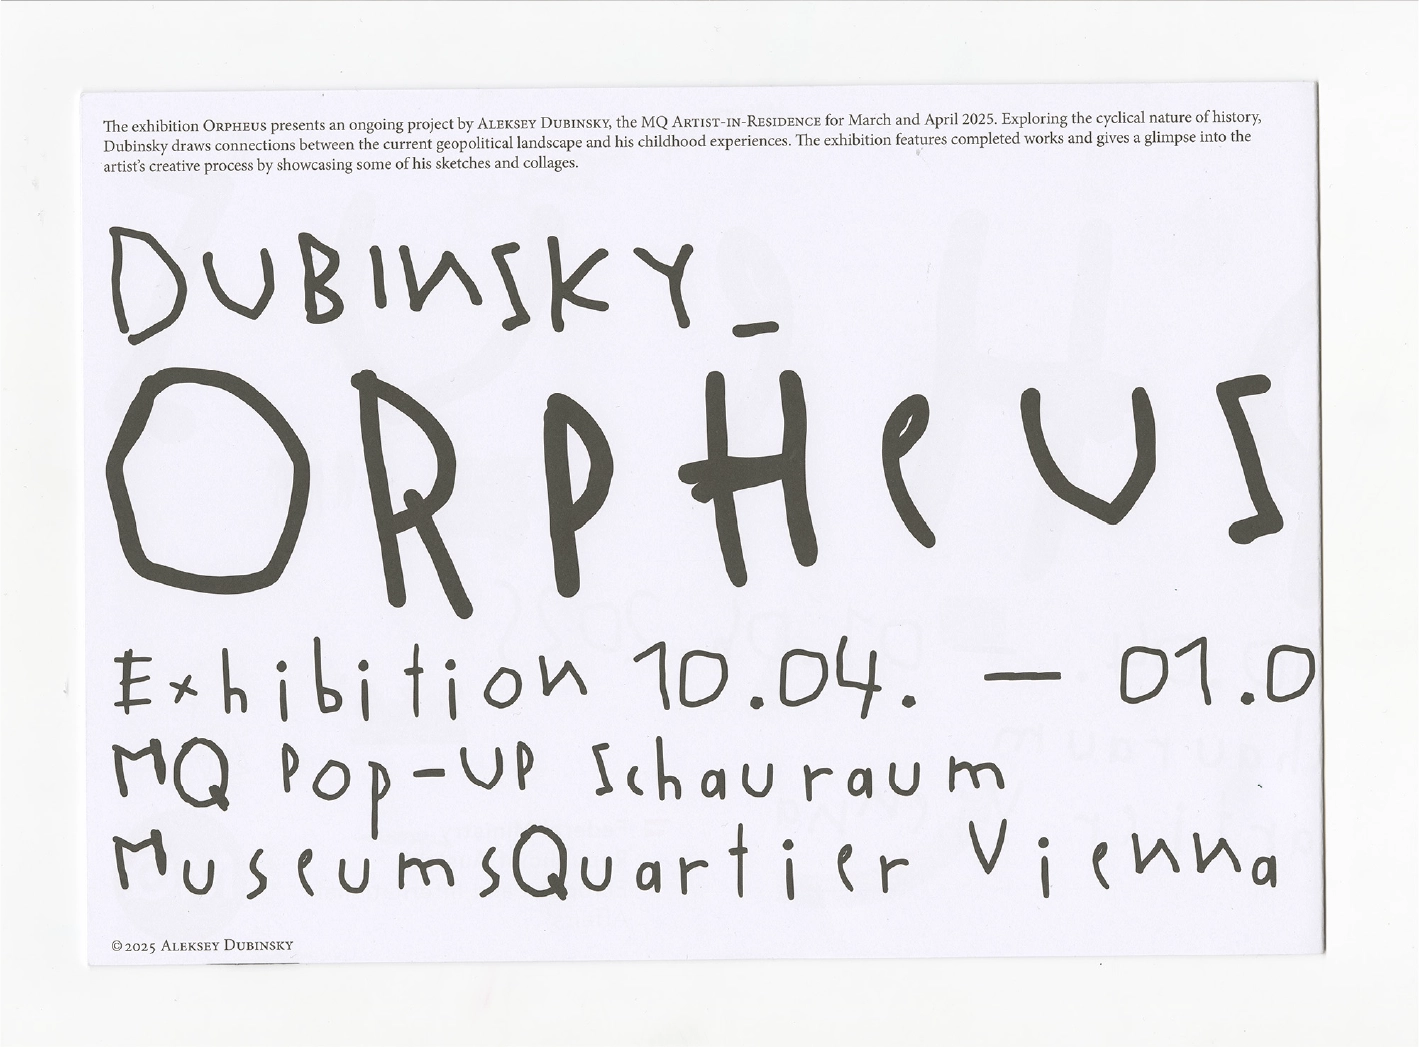 The exhibition Orpheus presents an ongoing project by Aleksey Dubinsky, the MQ Artist-in-Residence for March and April 2025. Exploring the cyclical nature of history,
Dubinsky draws connections between the current geopolitical landscape and his childhood experiences. The exhibition features completed works and gives a glimpse into the
artist's creative process by showcasing some of his sketches and collages.
DUBINSKY_
ORPHeUS
Exhibition 10.04. — 01.0
MQ Pop-UP Schauraum
MuseumsQuartier Vienna
© 2025 Aleksey Dubinsky